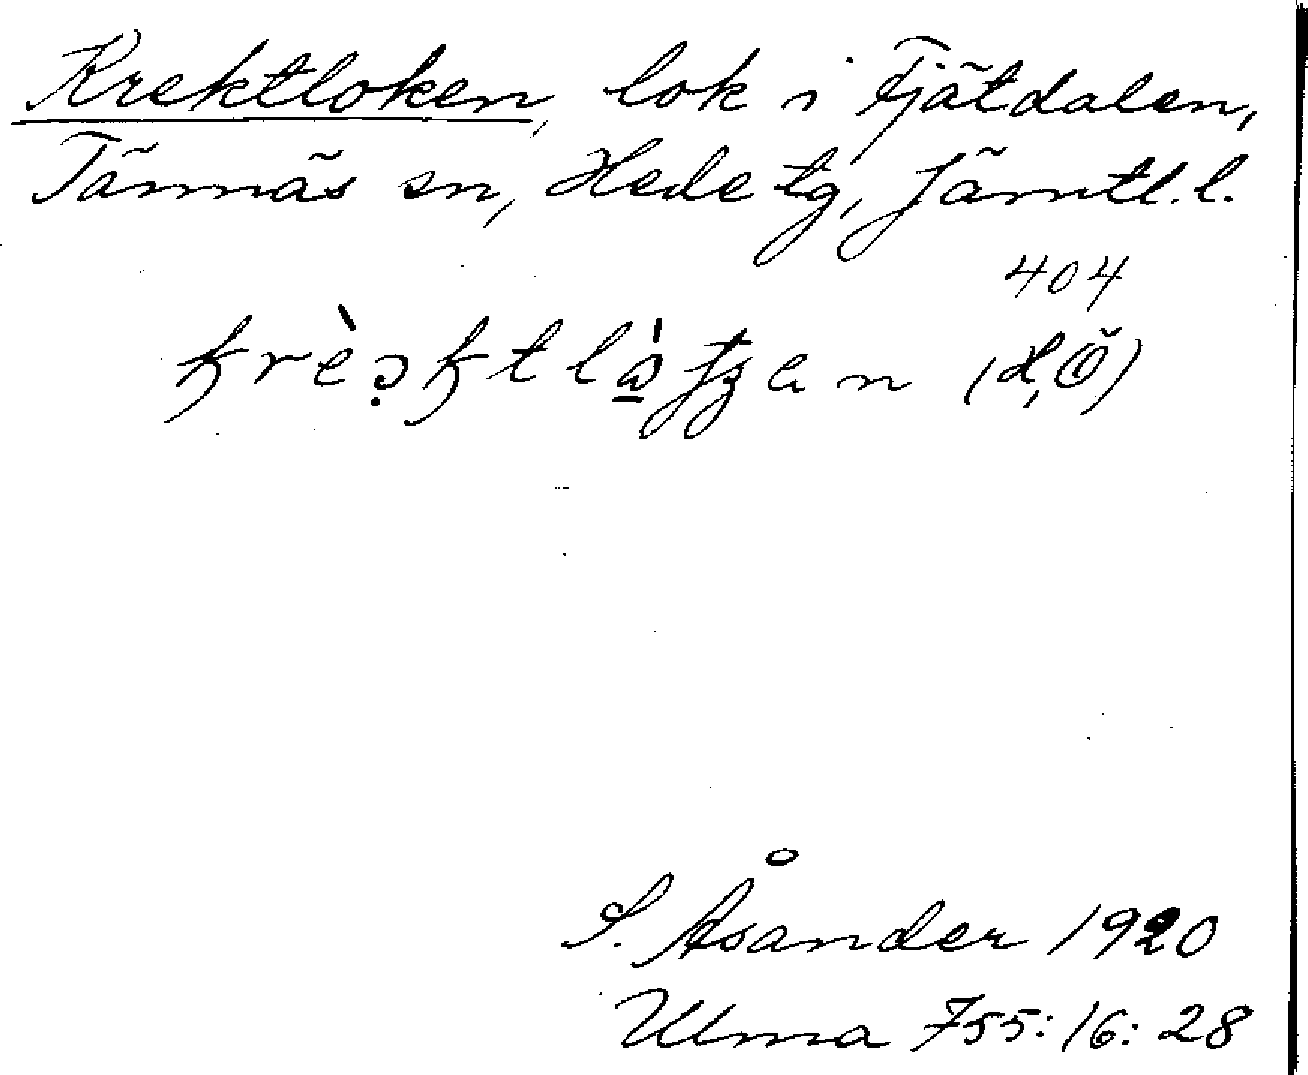 Krektloken, lok i Tjätdalen,
Tännäs sn, Hede tg, Jämtl. l.
404
S. Åsander 1920
Ulma 755:16:28